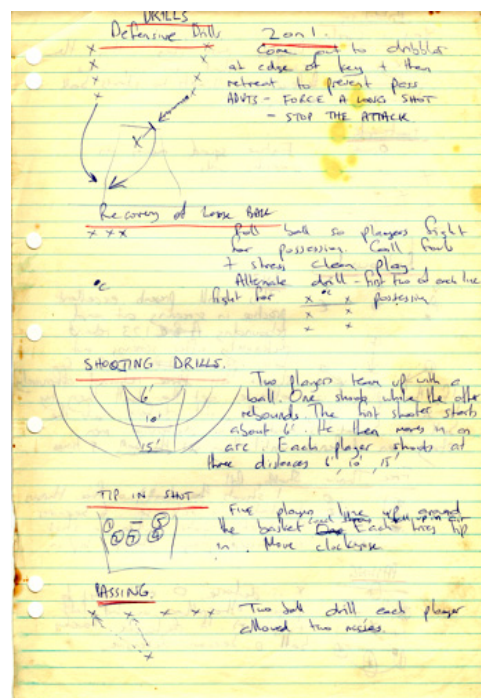 DRILLS
Defensive Drills
2 on 1.
Come out to dribbler
at edge of key + then
retreat to prevent pass
ADVTS - FORCE A LONG SHOT
- STOP THE ATTACK
Recovery of Loose Ball
x x x
Roll ball so players fight
for possession. Call fouls
+ stress clean play.
Alternate drill - first two of each line
fight for possession
SHOOTING DRILLS.
6'
10'
15'
Two players team up with a
ball. One shoots while the other
rebounds. The first shooter starts
about 6'. He then moves in an
arc. Each player shoots at
three distances 6', 10', 15'
TIP IN SHOT
Five players line up around
the basket up in air
Each tries tip
in. Move clockwise
PASSING.
Two ball drill each player
allowed two misses.